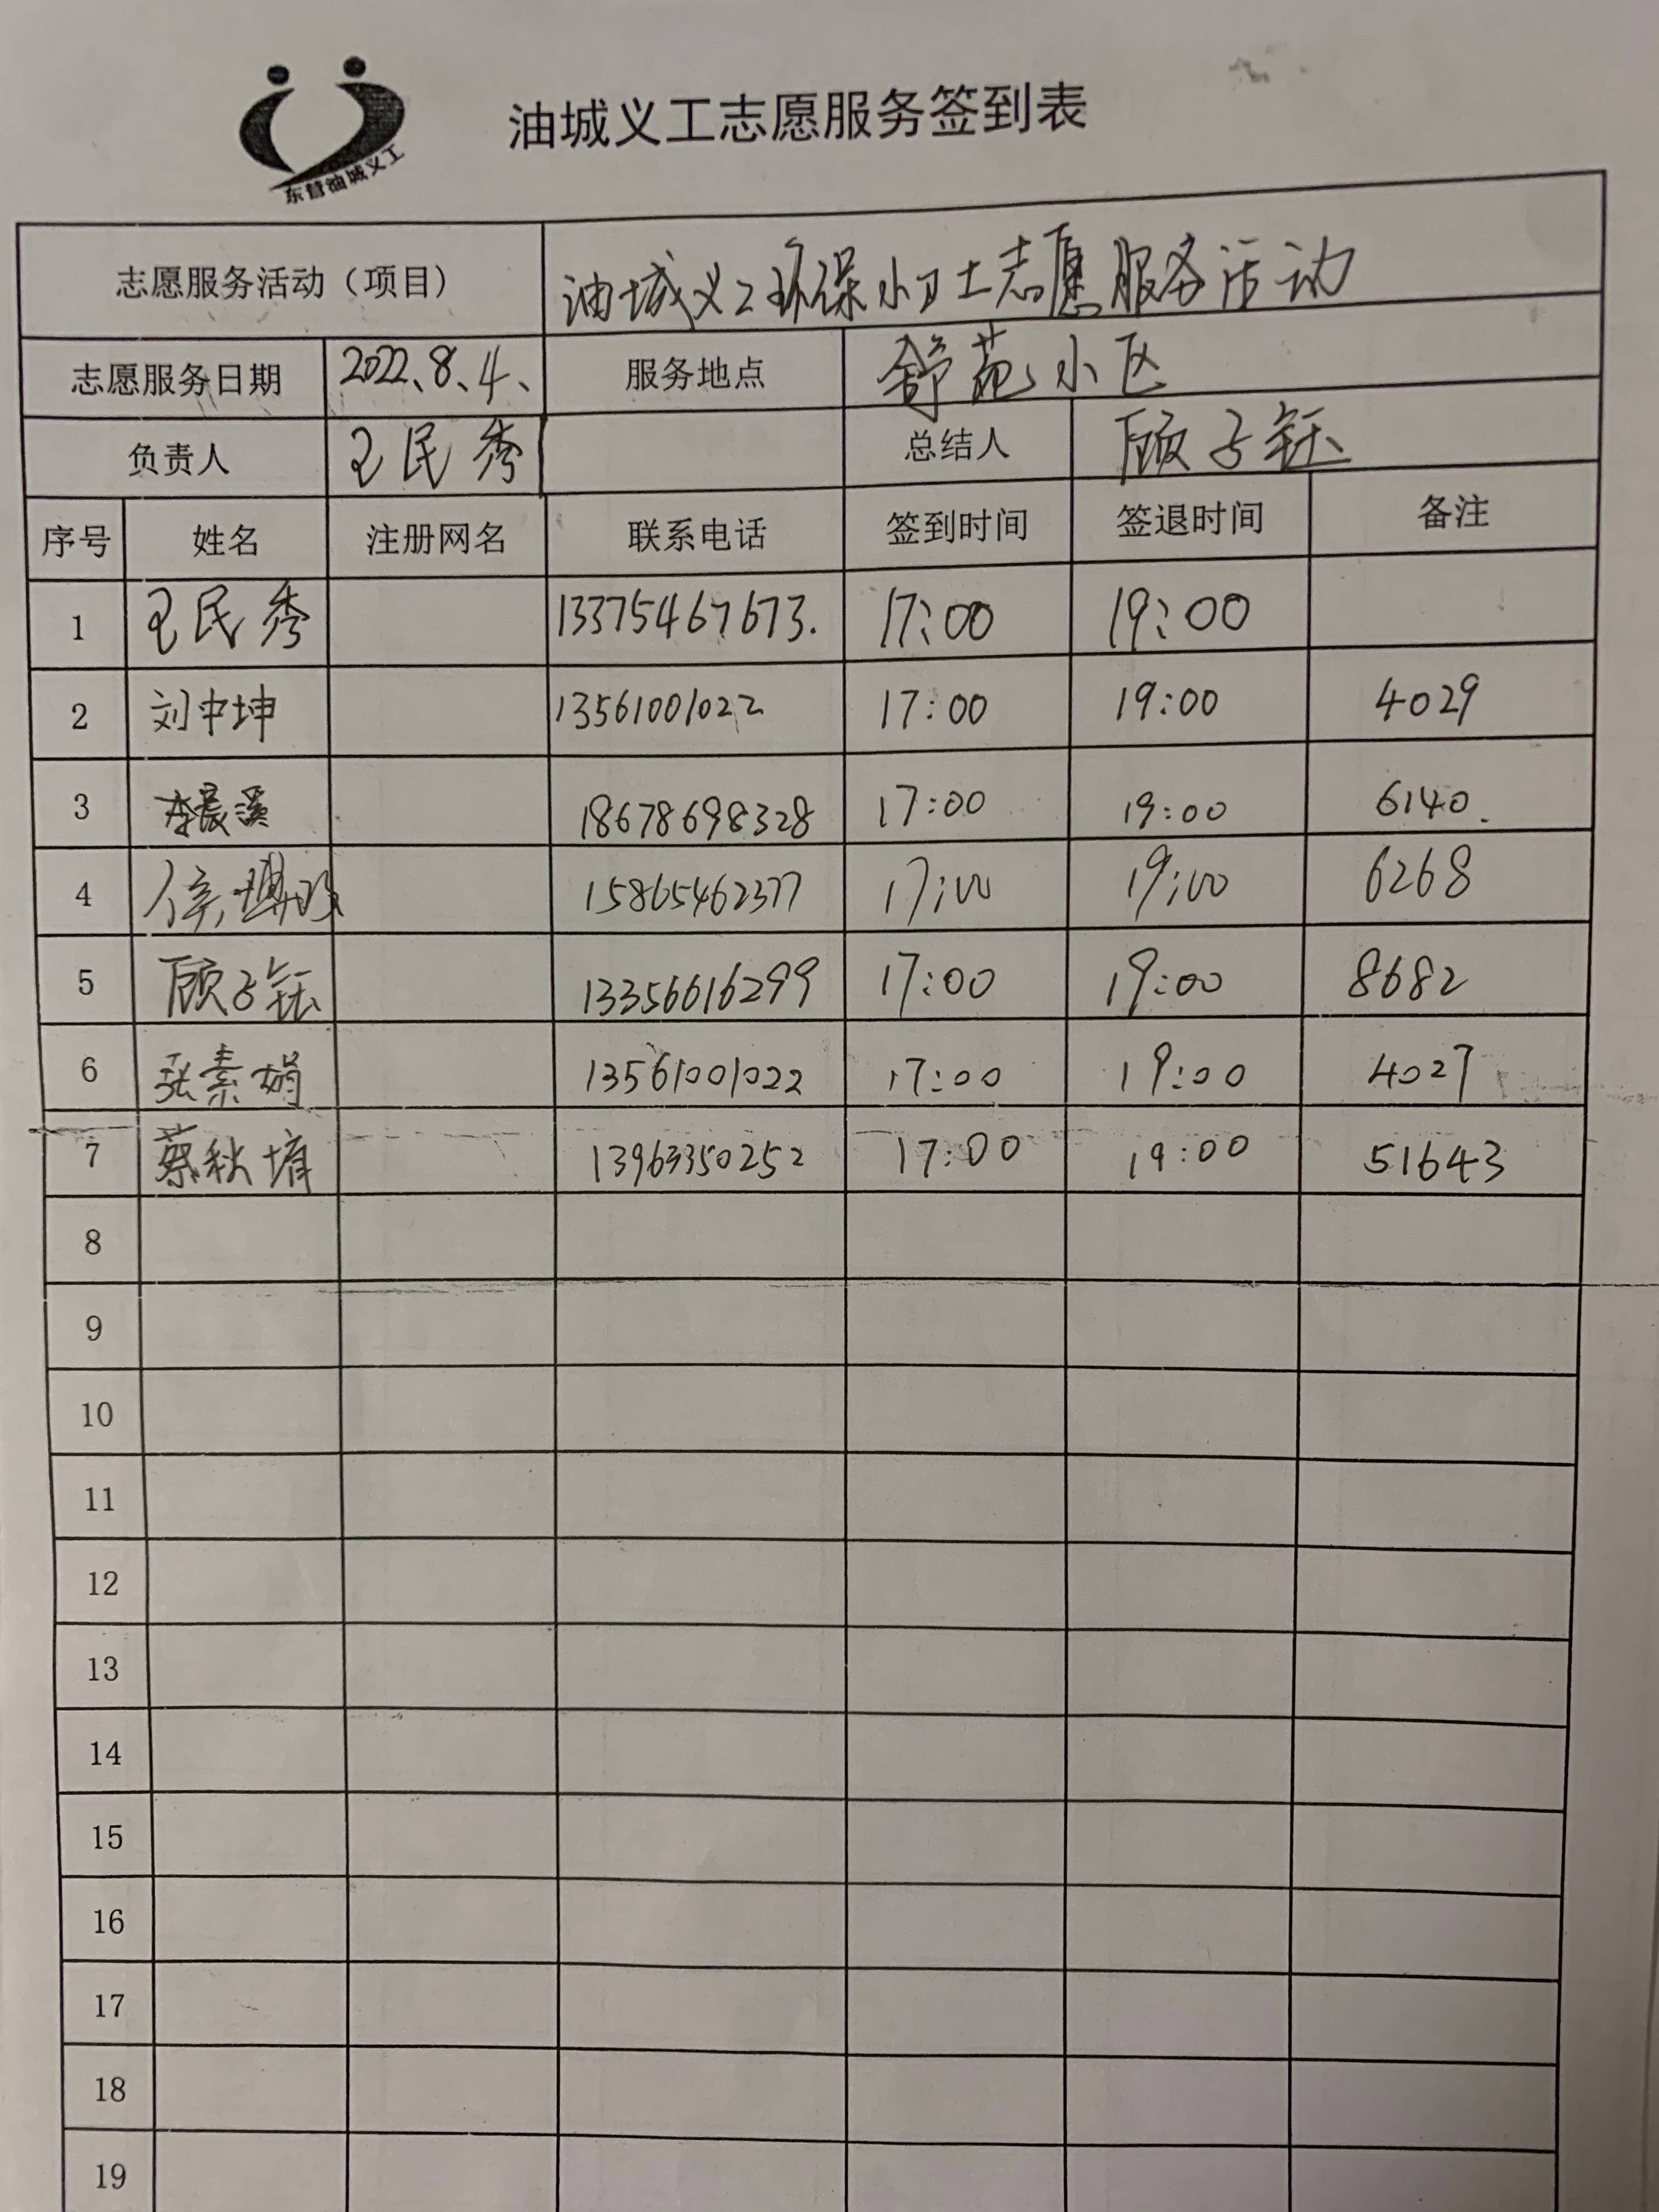 东营油城义工
油城义工志愿服务签到表
志愿服务活动（项目） 油城义工环保小卫士志愿服务活动
志愿服务日期 2022、8、4、 服务地点 舒苑小区
负责人 王民秀 总结人 顾子钰
序号 姓名 注册网名 联系电话 签到时间 签退时间 备注
1 王民秀 13375467673. 17:00 19:00
2 刘中坤 13561001022 17:00 19:00 4029
3 李晨溪 18678698328 17:00 19:00 6140.
4 15865462377 17:00 19:00 6268
5 顾子钰 13356616299 17:00 19:00 8682
6 张素娟 13561001022 17:00 19:00 4027
7 蔡秋堉 13963350252 17:00 19:00 51643
8
9
10
11
12
13
14
15
16
17
18
19